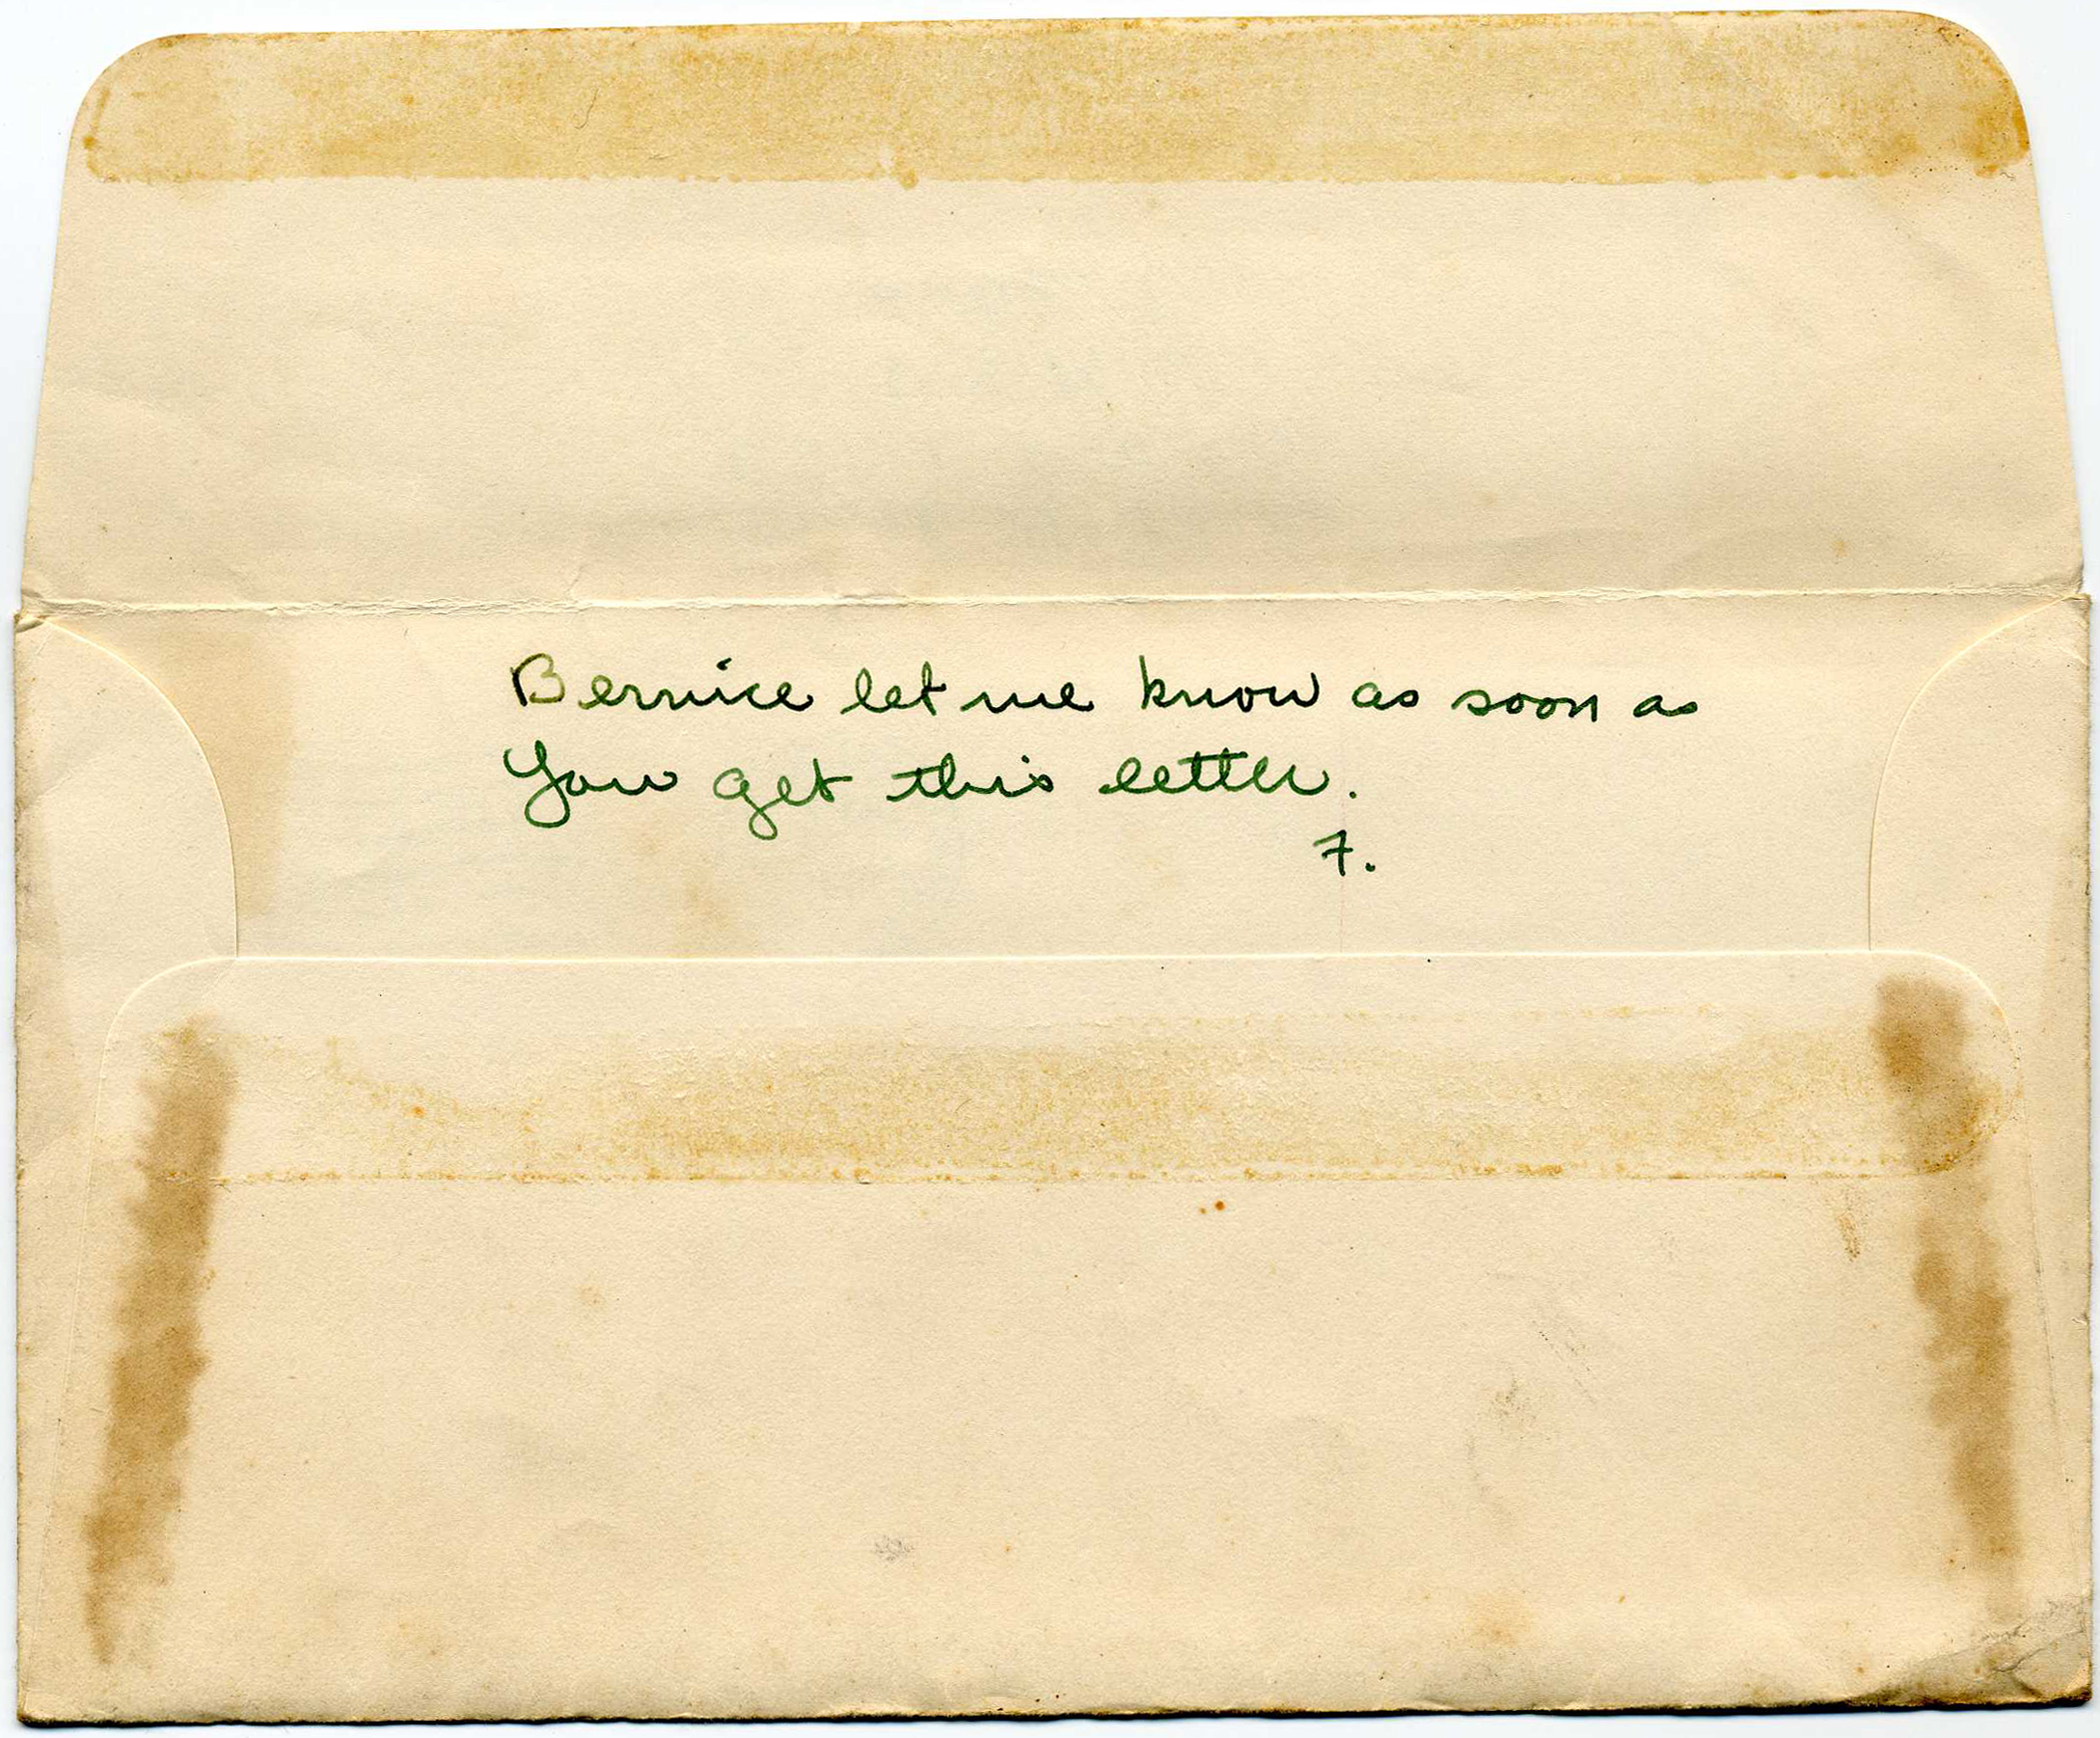 Bernice let me know as soon as
You get this letter.
F.